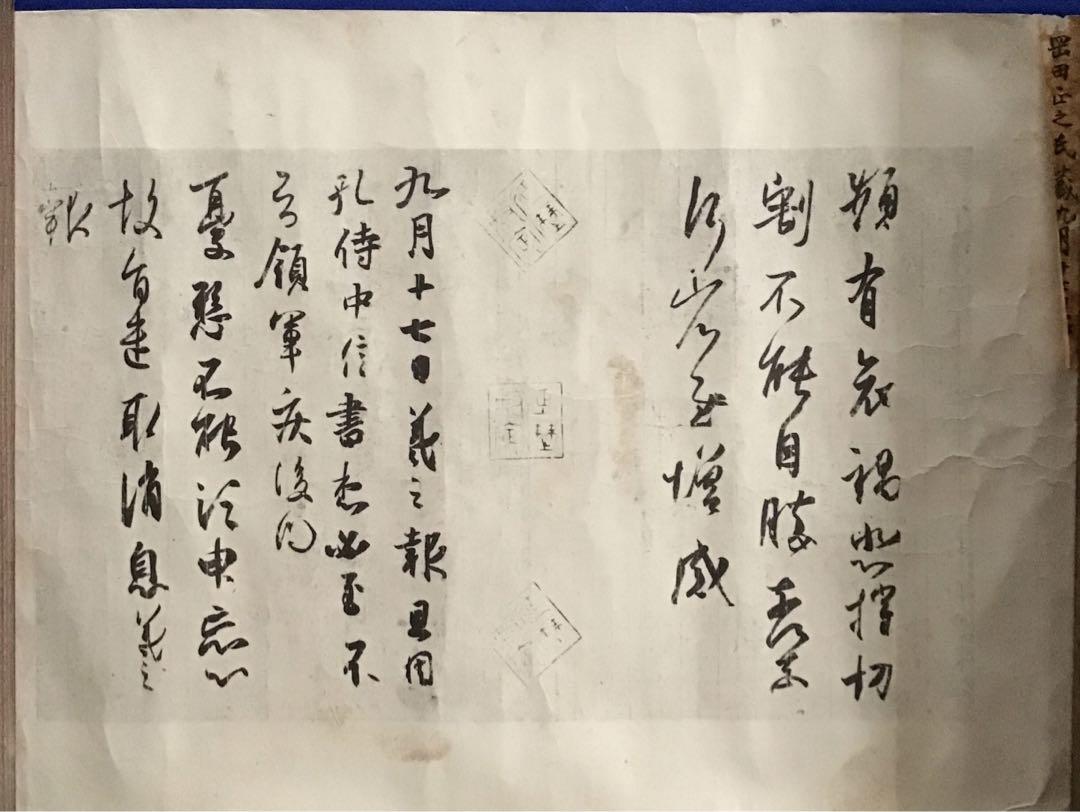 岡田正之氏藏九月十
頻有哀禍悲摧切
割不能自勝奈何奈
何省慰增感
九月十七日羲之報且因
孔侍中信書想必至不
知領軍疾後問
憂懸不能須臾忘心
故旨遣取消息羲之
報